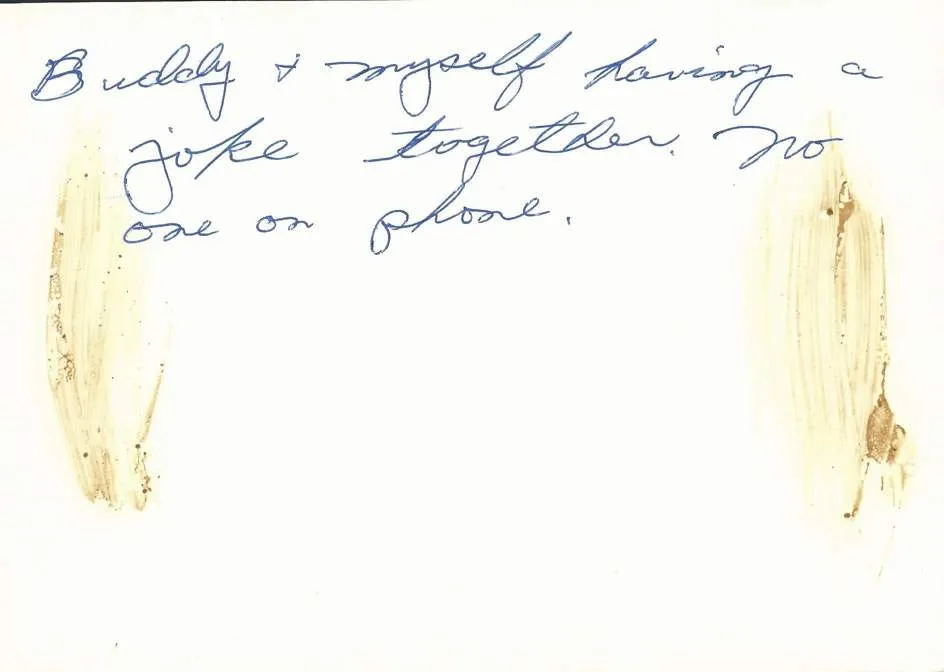 Buddy + myself having a
joke together. No
one on phone.